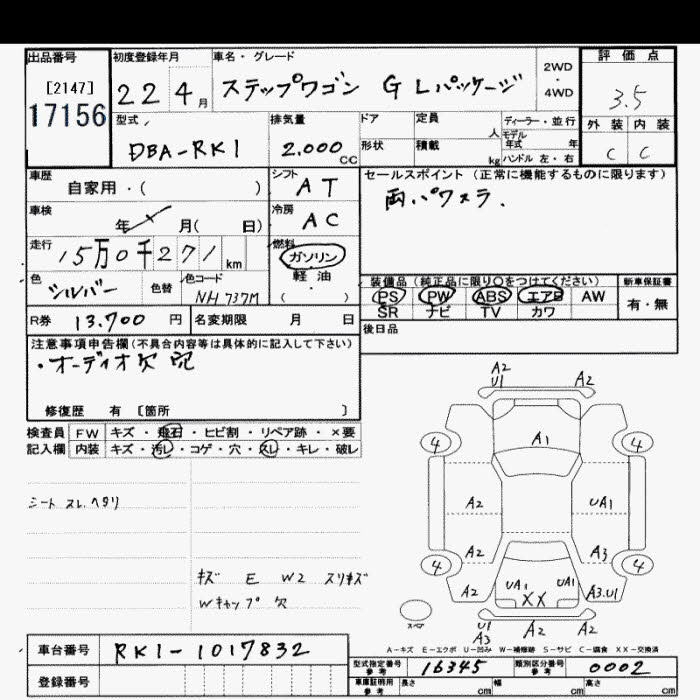 出品番号 初度登録年月 車名・グレード 2WD・4WD 評価点
[2147] 17156 22 4月 ステップワゴン G Lパッケージ 3.5
型式 排気量 ドア 定員 人 ディーラー・並行 外装 内装
DBA-RK1 2.000cc 形状 積載 kg モデル年式 年 ハンドル 左・右 C C
車歴 自家用・( ) シフト AT セールスポイント(正常に機能するものに限ります)
車検 年 月( 日) 冷房 AC 両パワスラ.
走行 15万0千271km 燃料 ガソリン・軽油・( )
色 シルバー 色替 色コード NH737M 装備品(純正品に限り○をつけてください) 新車保証書
PS PW ABS エアB AW 有・無
R券 13.700円 名変期限 月 日 SR ナビ TV カワ
注意事項申告欄(不具合内容等は具体的に記入して下さい) 後日品
・オーディオ欠 品
修復歴 有 [箇所 ]
検査員 FW キズ・飛石・ヒビ割・リペア跡・×要
記入欄 内装 キズ・汚レ・コゲ・穴・スレ・キレ・破レ
シート スレ.ヘタリ
キズ E W2 スリキズ
Wキャップ 欠
A2
U1 A2
4 A1 4
A2 UA1
A2 A3
4 4
A2 UA1 UA1 A3.U1
XX
スペア U1 A2 A2
A3
A-キズ E-エクボ U-凹み W-補修跡 S-サビ C-腐食 XX-交換済
車台番号 RK1-1017832 型式指定番号 参考 16345 類別区分番号 参考 0002
登録番号 車庫証明用 参考 長さ cm 幅 cm 高さ cm